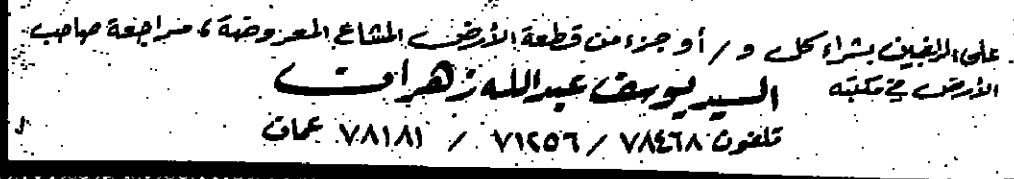 على الراغبين بشراء كل و/أو جزء من قطعة الأرض المشاع المعروضة، مراجعة صاحب
الأرض في مكتبه السيد يوسف عبدالله زهرات
تلفون ٧٨٤٦٨ / ٧١٢٥٦ / ٧٨١٨١ عمان